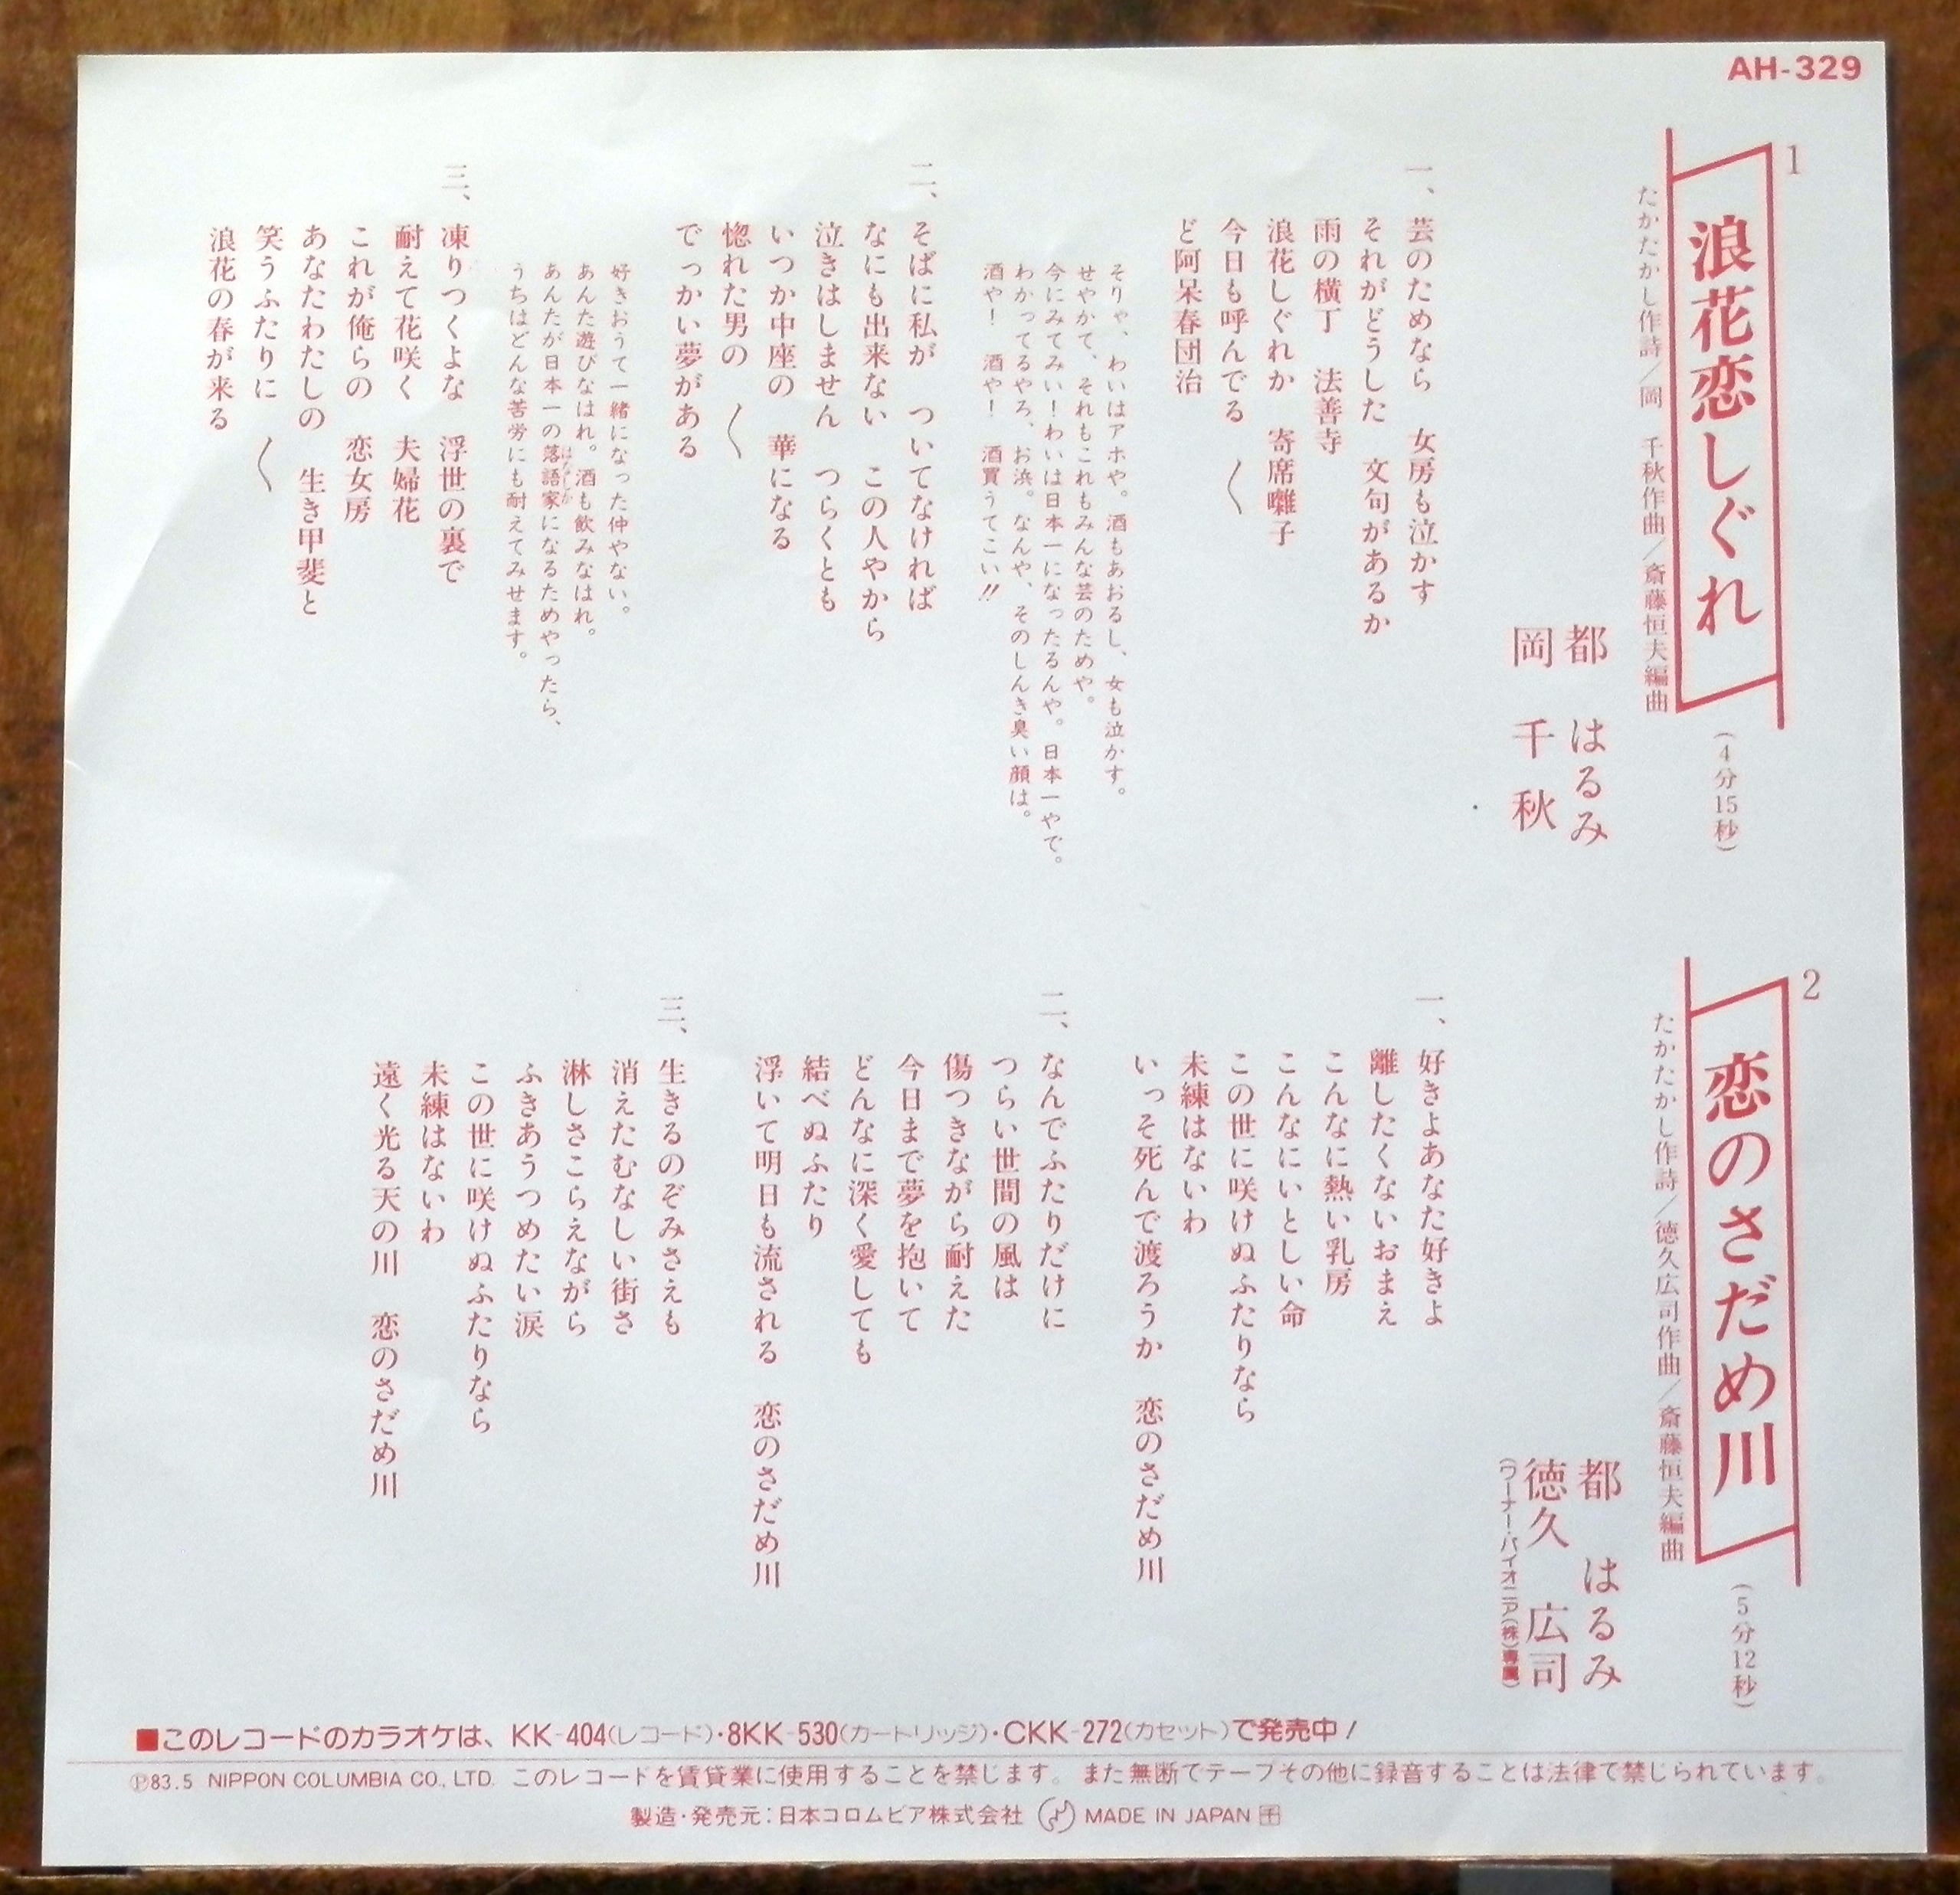 AH-329
1
浪花恋しぐれ
(4分15秒)
たかたかし作詩／岡 千秋作曲／斎藤恒夫編曲
都 はるみ
岡 千秋
一、芸のためなら 女房も泣かす
それがどうした 文句があるか
雨の横丁 法善寺
浪花しぐれか 寄席囃子
今日も呼んでる 〱
ど阿呆春団治
そりゃ、わいはアホや。酒もあおるし、女も泣かす。
せやかて、それもこれもみんな芸のためや。
今にみてみい！わいは日本一になったるんや。日本一やで。
わかってるやろ、お浜。なんや、そのしんき臭い顔は。
酒や！ 酒や！ 酒買うてこい!!
二、そばに私が ついてなければ
なにも出来ない この人やから
泣きはしません つらくとも
いつか中座の 華になる
惚れた男の 〱
でっかい夢がある
好きおうて一緒になった仲やない。
あんた遊びなはれ。酒も飲みなはれ。
あんたが日本一の落語家になるためやったら、
はなしか
うちはどんな苦労にも耐えてみせます。
三、凍りつくよな 浮世の裏で
耐えて花咲く 夫婦花
これが俺らの 恋女房
あなたわたしの 生き甲斐と
笑うふたりに 〱
浪花の春が来る
2
恋のさだめ川
(5分12秒)
たかたかし作詩／徳久広司作曲／斎藤恒夫編曲
都 はるみ
徳久 広司
(ワーナー・パイオニア(株)専属)
一、好きよあなた好きよ
離したくないおまえ
こんなに熱い乳房
こんなにいとしい命
この世に咲けぬふたりなら
未練はないわ
いっそ死んで渡ろうか 恋のさだめ川
二、なんでふたりだけに
つらい世間の風は
傷つきながら耐えた
今日まで夢を抱いて
どんなに深く愛しても
結べぬふたり
浮いて明日も流される 恋のさだめ川
三、生きるのぞみさえも
消えたむなしい街さ
淋しさこらえながら
ふきあうつめたい涙
この世に咲けぬふたりなら
未練はないわ
遠く光る天の川 恋のさだめ川
■このレコードのカラオケは、KK-404(レコード)・8KK-530(カートリッジ)・CKK-272(カセット)で発売中！
Ⓟ83.5 NIPPON COLUMBIA CO., LTD. このレコードを賃貸業に使用することを禁じます。また無断でテープその他に録音することは法律で禁じられています。
製造・発売元：日本コロムビア株式会社 MADE IN JAPAN